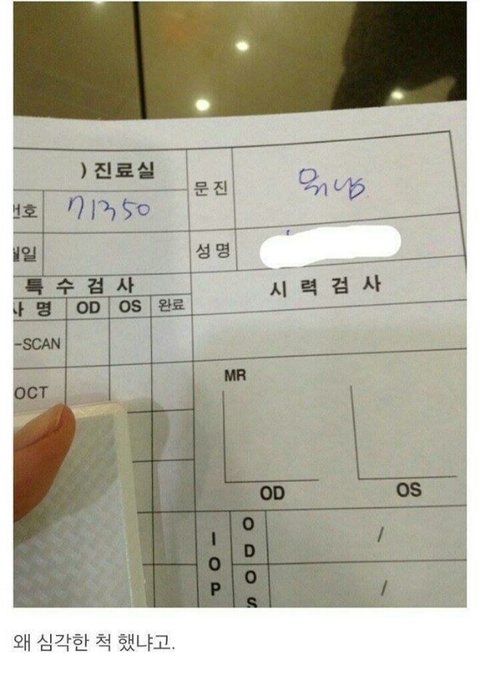 ) 진료실
문진
번호 71350
월일
성명
특 수 검 사
시 력 검 사
사 명 OD OS 완료
-SCAN
OCT
MR
OD OS
IOP
OD
/
OS
/
왜 심각한 척 했냐고.